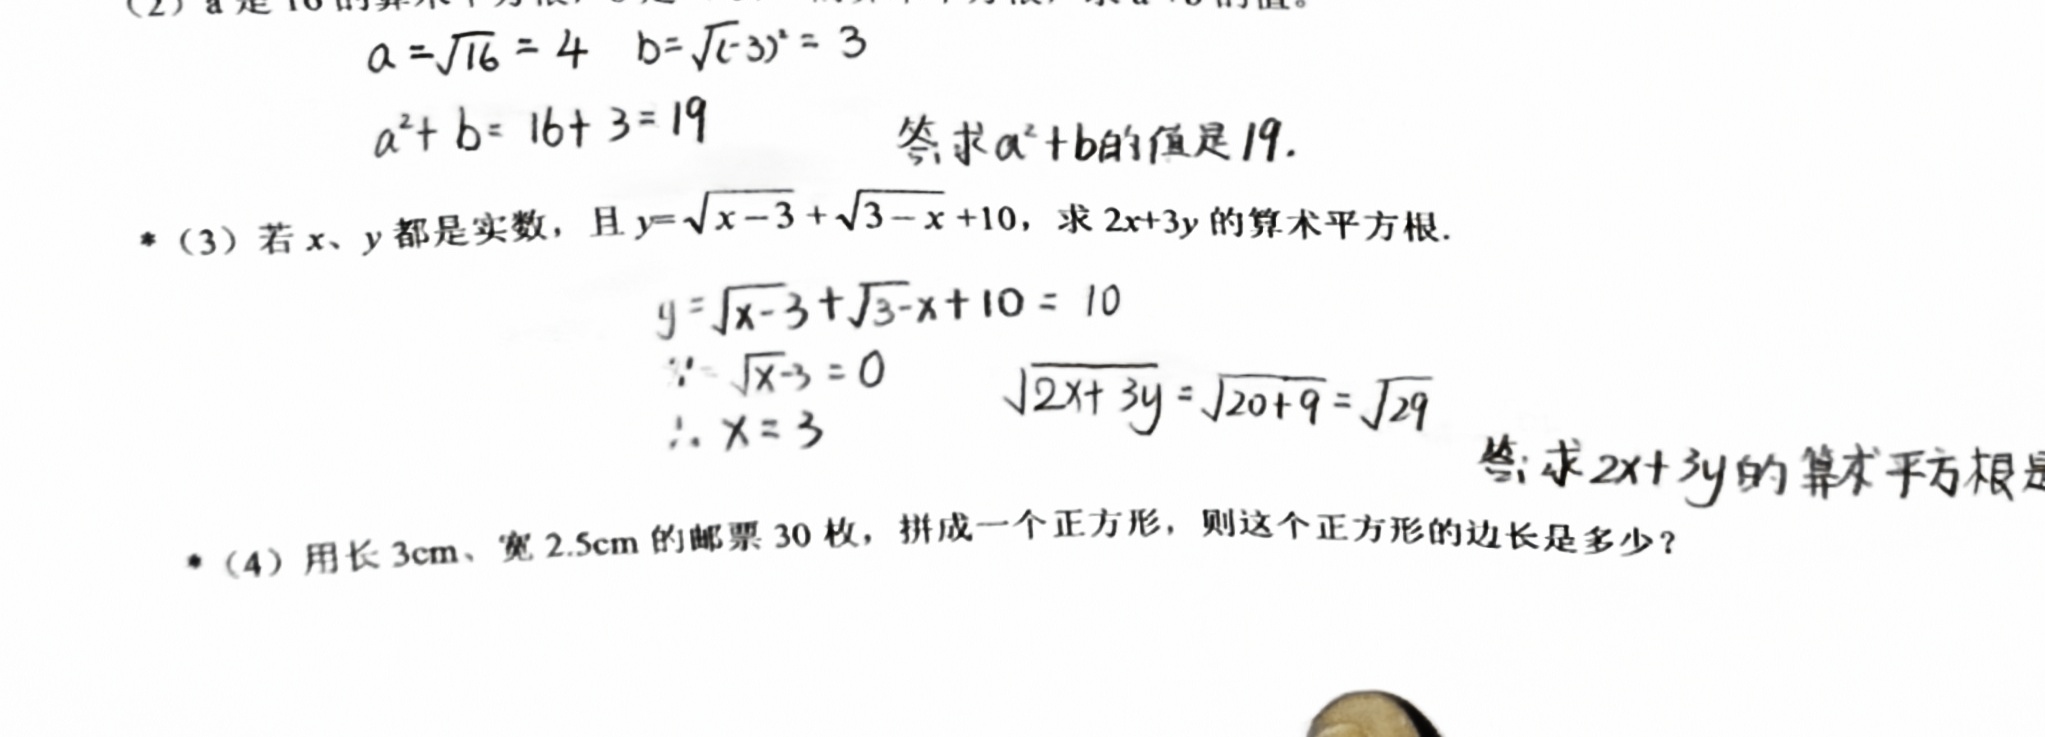 (2) a 是 16 的算术平方根,
a = √16 = 4 b = √(-3)² = 3
a² + b = 16 + 3 = 19
答: 求 a² + b 的值是 19.
*(3) 若 x、y 都是实数，且 y=√(x-3) + √(3-x) +10，求 2x+3y 的算术平方根.
y = √x-3 + √3-x + 10 = 10
∵ √x-3 = 0
∴ x = 3
√(2x+3y) = √(20+9) = √29
答: 求 2x+3y 的算术平方根是
*(4) 用长 3cm、宽 2.5cm 的邮票 30 枚，拼成一个正方形，则这个正方形的边长是多少？